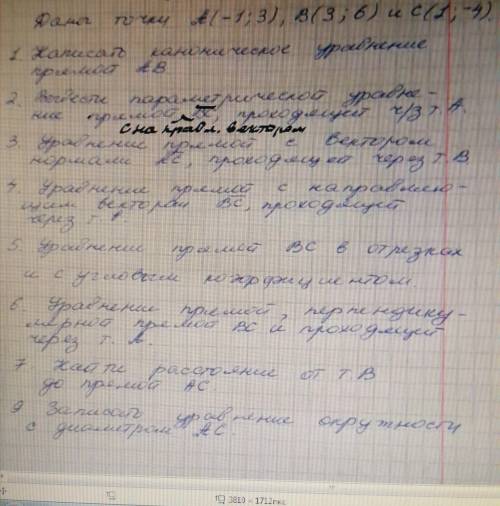 Даны точки A(-1;3), B(3;6) и C(1;-4)
1. Записать каноническое уравнение
прямой AB.
2. Вывести параметрической уравне-
ние прямой, проходящей ч/з т. A.
с направл. вектором
3. Уравнение прямой с вектором
нормали AC, проходящей через т. B
4. Уравнение прямой с направляю-
щим вектором BC, проходящей
через т. A.
5. Уравнение прямой BC в отрезках
и с угловым коэффициентом.
6. Уравнение прямой, перпендику-
лярной прямой BC и проходящей
через т. A.
7. Найти расстояние от т. B
до прямой AC.
9. Записать уравнение окружности
с диаметром AC.
3810 × 1712пкс